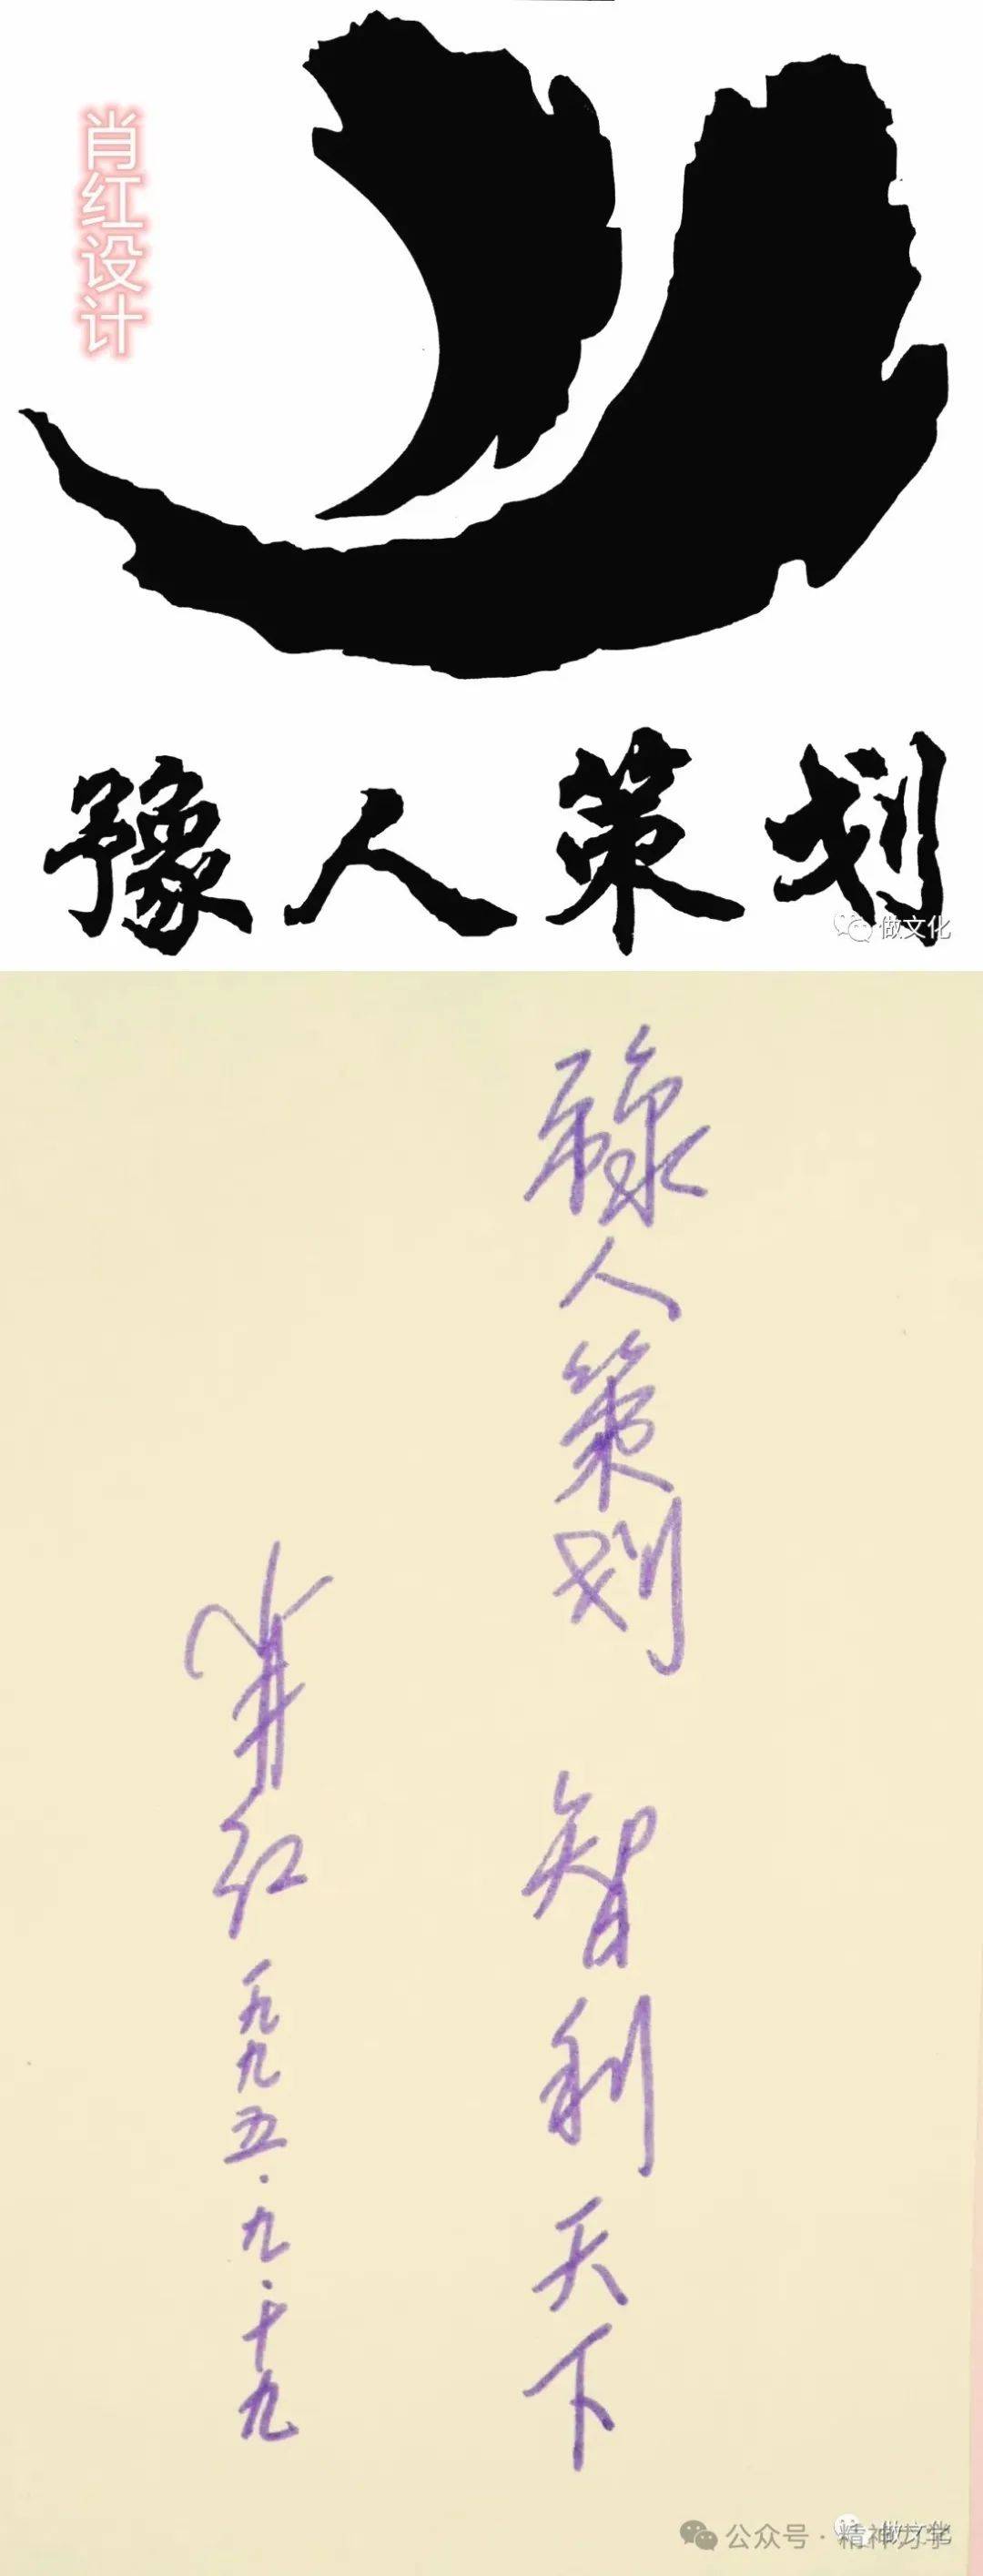 肖红设计
豫人策划
做文化
豫人策划 智利天下
肖红
一九九五·九·十九
公众号·精神
做文化